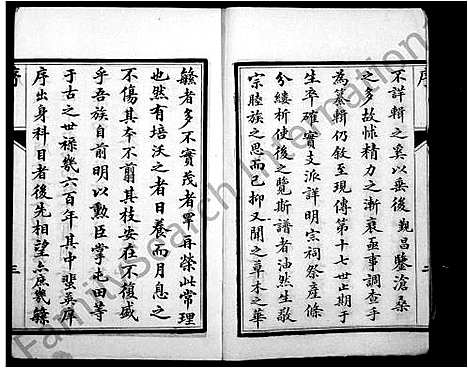 序
不詳輯之奚以垂後觀昌鑒滄桑
之多故怵精力之漸衰亟事調查手
為纂輯仍敘至現傳第十七世止期于
生卒確實支派詳明宗祠祭產條
分縷析使後之覽斯譜者油然生敬
宗睦族之思而已抑又聞之草木之華
二
繇者多不實茂者罕再榮此常理
也然有培沃之者日養而月息之
不傷其本不翦其枝安在不復盛
乎吾族自前明以勲臣掌屯田等
于古之世祿幾六百年其中蜚英庠
序出身科目者後先相望亦庶幾繇
三
FamilySearch International